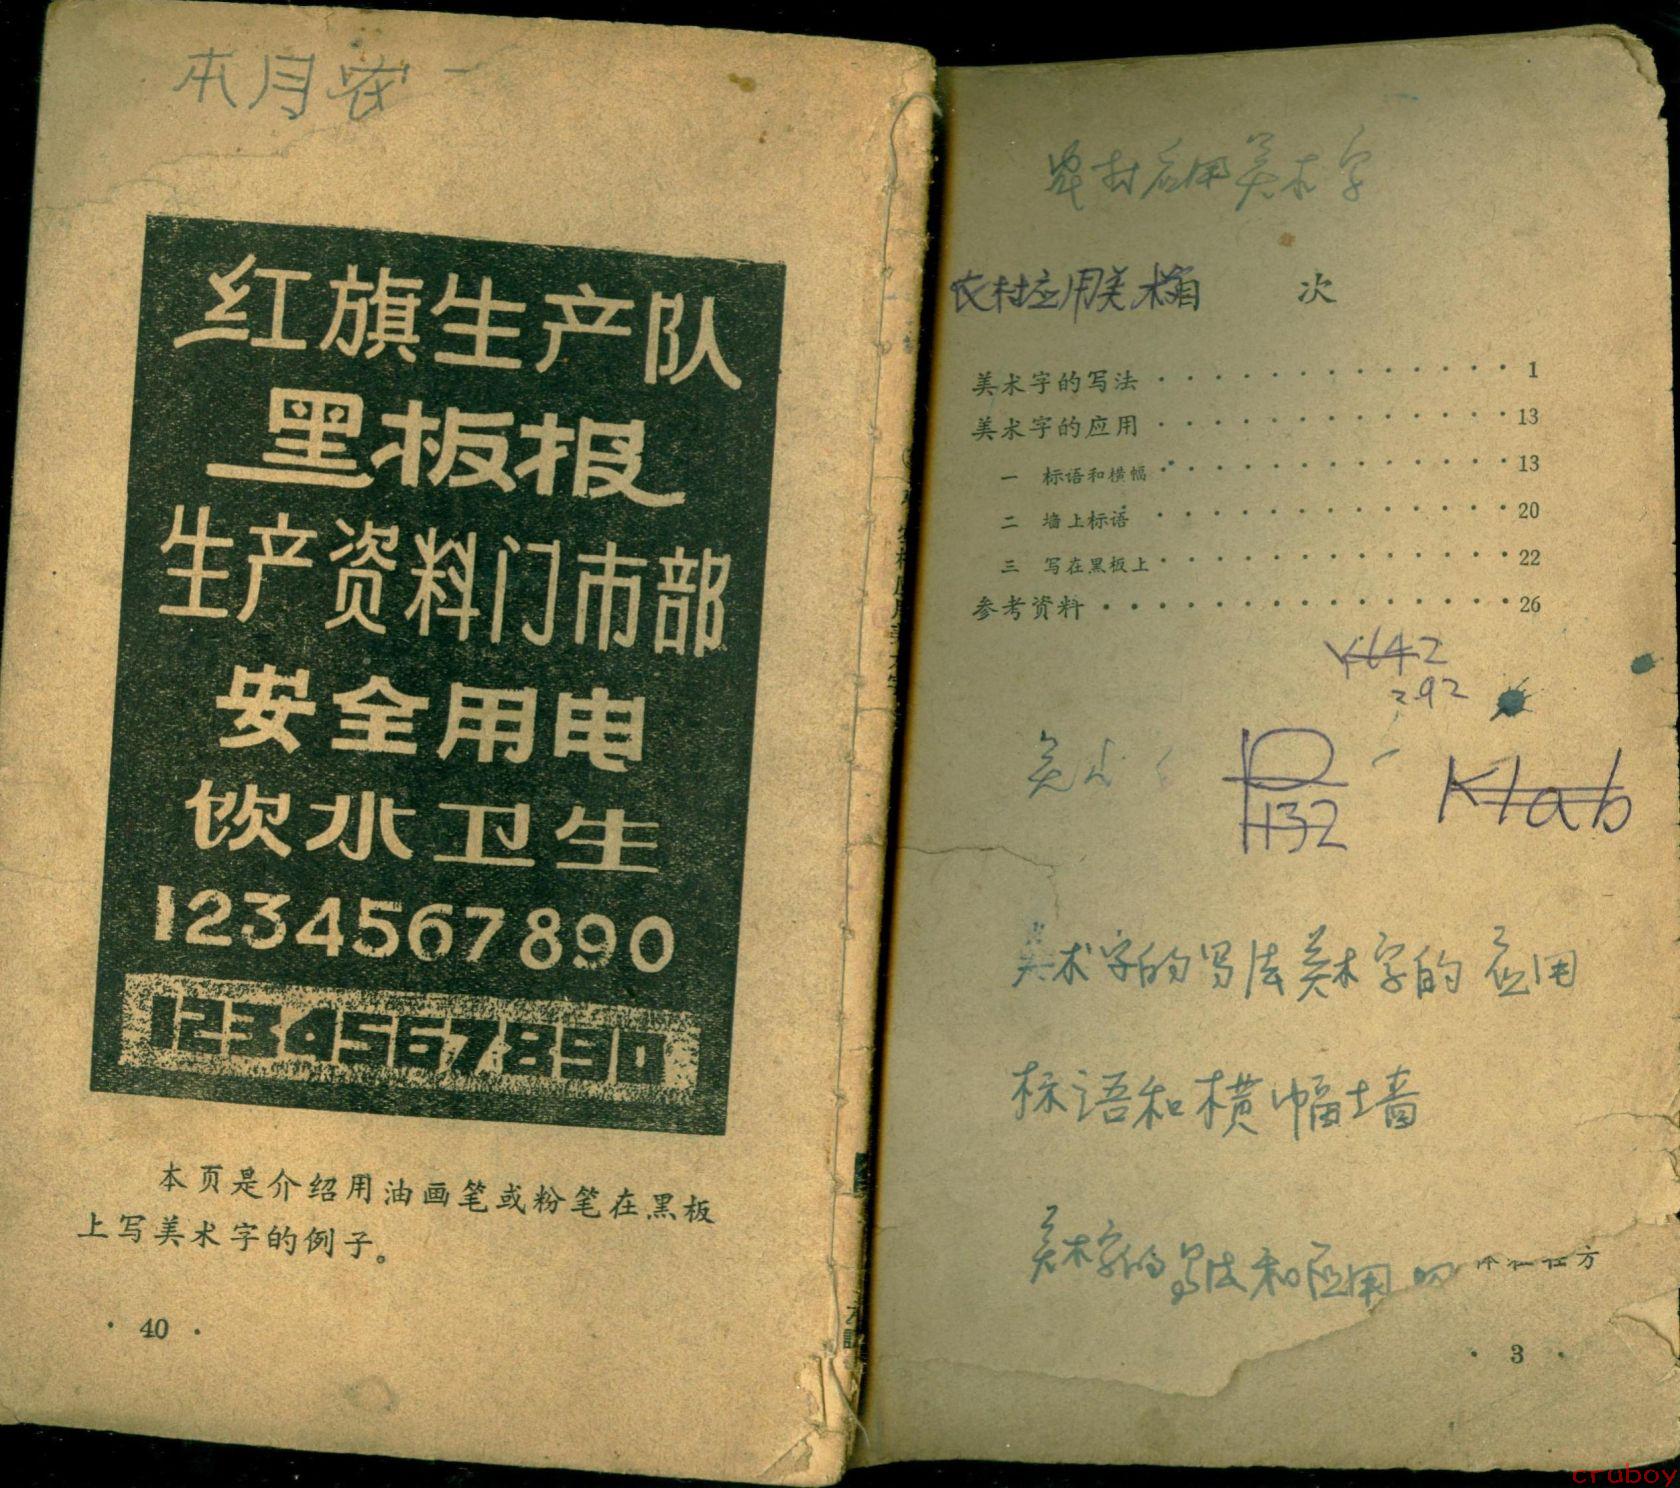 本月农
红旗生产队
黑板报
生产资料门市部
安全用电
饮水卫生
1234567890
1234567890
本页是介绍用油画笔或粉笔在黑板
上写美术字的例子。
· 40 ·
农村应用美术字
农村应用美术
目 次
美术字的写法 · · · · · · · · · · · · · 1
美术字的应用 · · · · · · · · · · · · · 13
一 标语和横幅 · · · · · · · · · · · · · 13
二 墙上标语 · · · · · · · · · · · · · 20
三 写在黑板上 · · · · · · · · · · · · · 22
参考资料 · · · · · · · · · · · · · · · 26
292
美术
132
Klab
美术字的写法美术字的应用
标语和横幅墙
美术字的写法和应用的
方
· 3 ·
cruboy